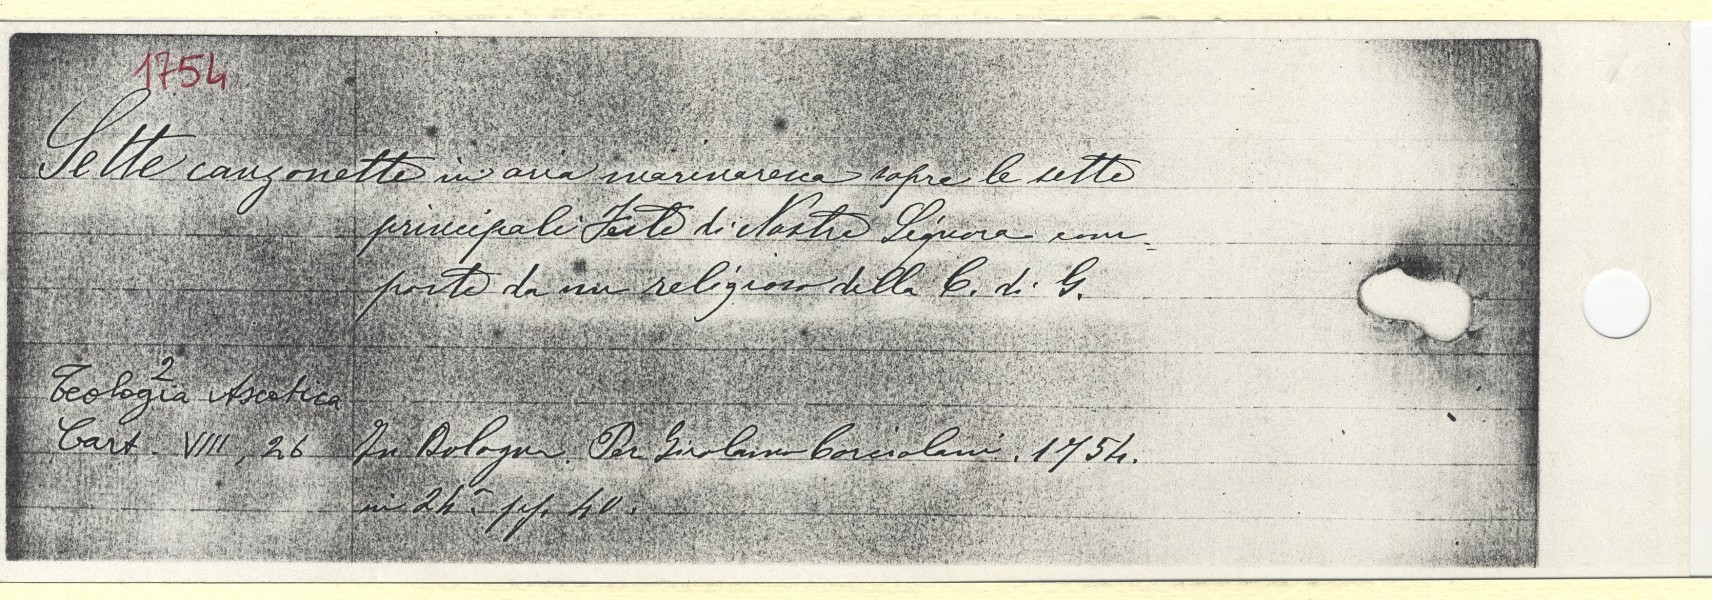 1754
Sette canzonette in aria marinaresca sopra le sette
principali Feste di Nostra Signora com-
poste da un religioso della C. di G.
2
Teologia Ascetica
Cart. VIII, 26 In Bologna. Per Girolamo Corciolani. 1754.
in 24° pp. 40.